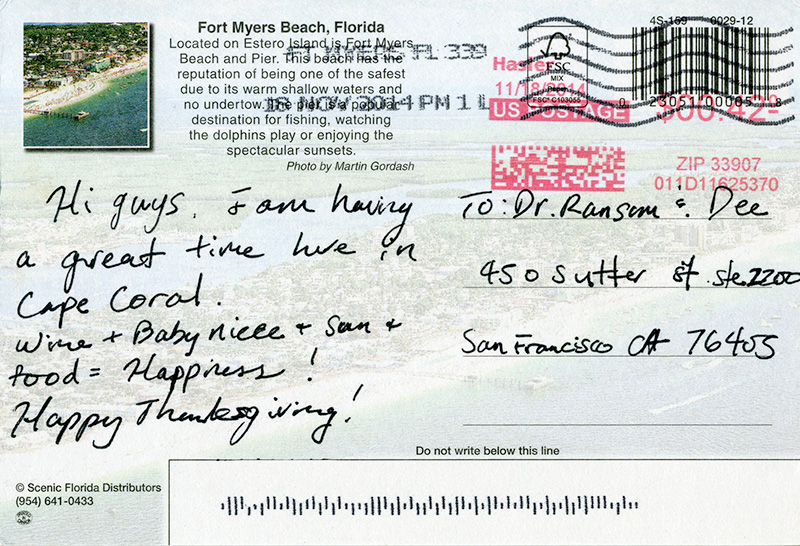 Fort Myers Beach, Florida
Located on Estero Island is Fort Myers
Beach and Pier. This beach has the
reputation of being one of the safest
due to its warm shallow waters and
no undertow. The pier is a popular
destination for fishing, watching
the dolphins play or enjoying the
spectacular sunsets.
Photo by Martin Gordash
FT MYERS FL 339
18 NOV 2014 PM 1 L
FSC
MIX
FSC® C103055
4S-159 0029-12
0 23051 00005 8
Hasler
11/18/2014
US POSTAGE
$00.42
ZIP 33907
011D11625370
Hi guys, I am having
a great time here in
Cape Coral.
Wine + Baby niece + Sun +
food = Happiness!
Happy Thanksgiving!
To: Dr. Ransom & Dee
450 Sutter St. Ste. 2200
San Francisco CA 76405
Do not write below this line
© Scenic Florida Distributors
(954) 641-0433